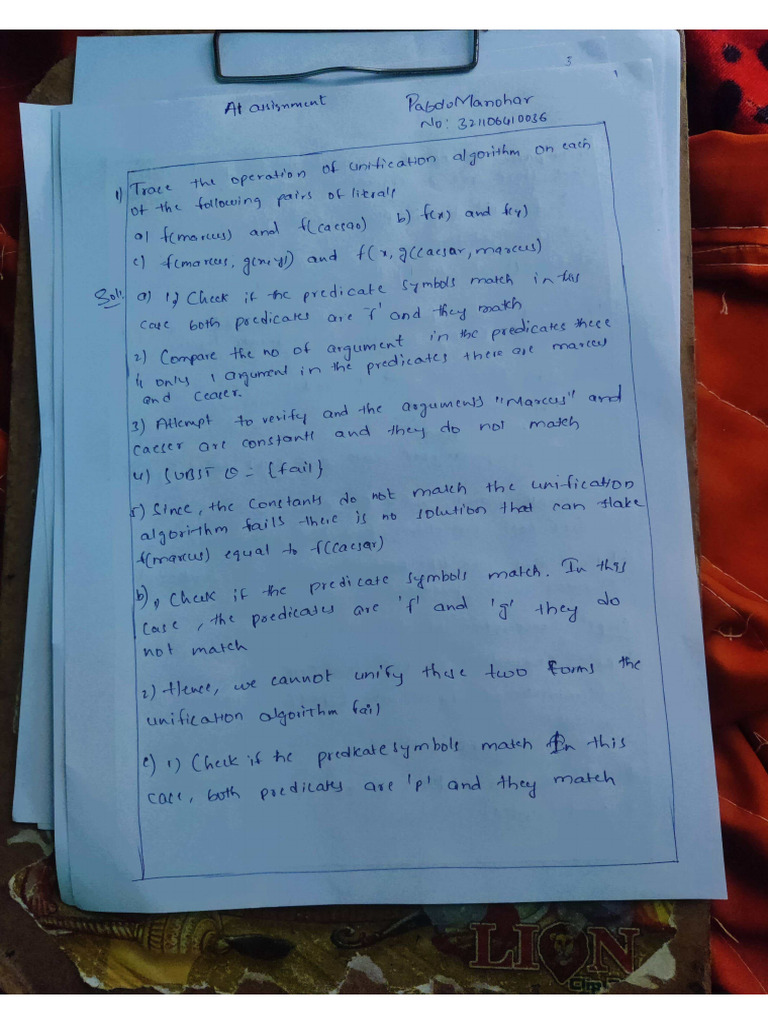 3
1
AI assignment
PabduManohar
No: 321106410036
1) Trace the operation of unification algorithm on each
of the following pairs of literals
a) f(marcus) and f(caesar) b) f(x) and f(y)
c) f(marcus, g(x,y)) and f(x, g(caesar, marcus)
Sol:
a) 1) Check if the predicate symbols match in this
case both predicates are 'f' and they match
2) Compare the no of argument in the predicates there
is only 1 argument in the predicates there are marcus
and Ceaser.
3) Attempt to verify and the arguments "Marcus" and
caeser are constants and they do not match
4) SUBST θ = {fail}
5) Since, the constants do not match the unification
algorithm fails there is no solution that can make
f(marcus) equal to f(caesar)
b) 1) Check if the predicate symbols match. In this
case, the predicates are 'f' and 'g' they do
not match
2) Hence, we cannot unify these two forms the
unification algorithm fail
c) 1) Check if the predicate symbols match In this
case, both predicates are 'p' and they match
LION